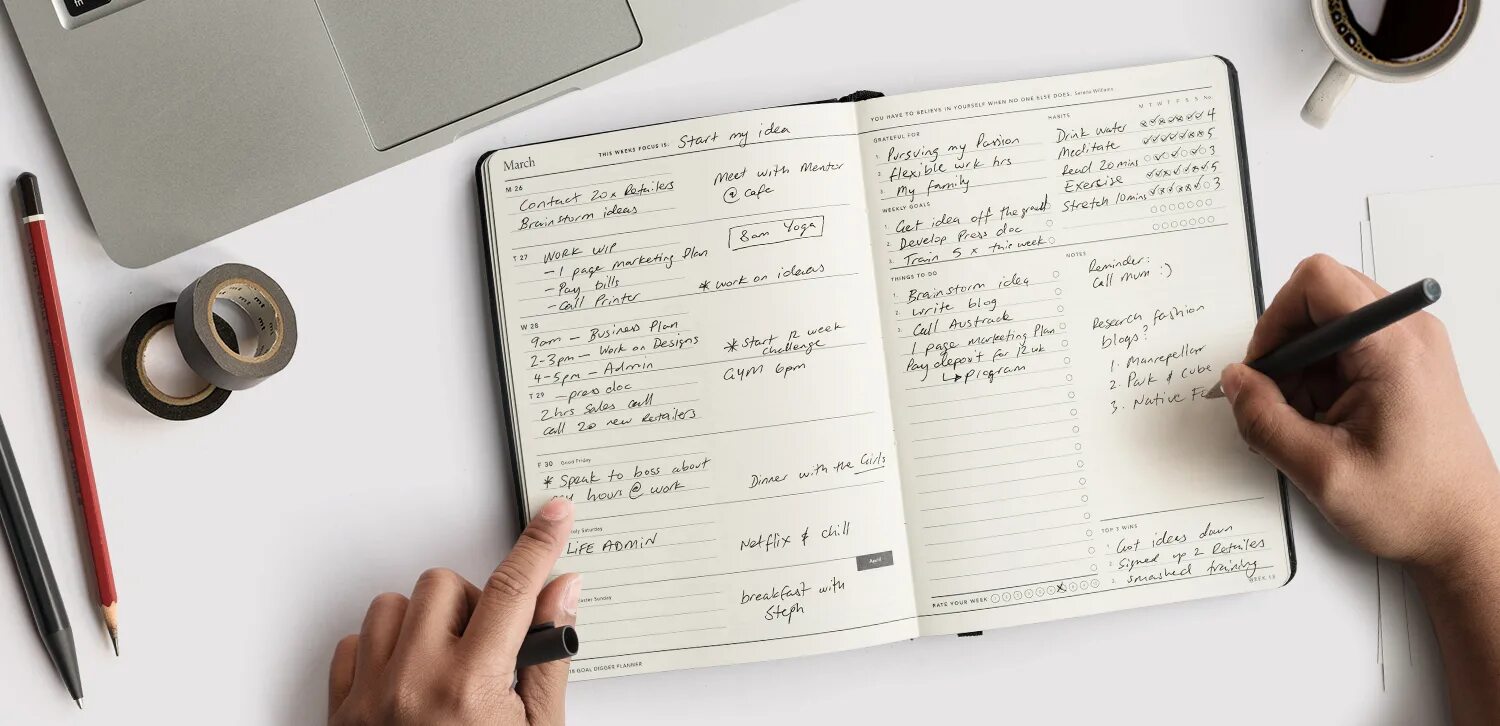 fn
March
THIS WEEKS FOCUS IS: Start my idea
M 26
Contact 20x Retailers
Brainstorm ideas
Meet with Mentor
@ cafe
T 27
WORK WIP
- 1 page marketing Plan
- Pay bills
- Call Printer
8am Yoga
* work on ideas
W 28
9am - Business Plan
2-3pm - Work on Designs
4-5pm - Admin
* Start 12 week
challenge
Gym 6pm
T 29
- press doc
2hrs Sales call
call 20 new Retailers
F 30 Good Friday
* Speak to boss about
hours @ work
Dinner with the Girls
Saturday
LIFE ADMIN
Netflix & chill
April
Sunday
breakfast with
Steph
GOAL DIGGER PLANNER
YOU HAVE TO BELIEVE IN YOURSELF WHEN NO ONE ELSE DOES. Serena Williams
GRATEFUL FOR
1. Pursuing my Passion
2. flexible wrk hrs
3. My family
WEEKLY GOALS
1. Get idea off the
2. Develop Press doc
3. Train 5 x this week
THINGS TO DO
1. Brainstorm idea
2. write blog
3. Call Austrade
1 page marketing Plan
Pay deposit for 12 wk
program
HABITS
M T W T F S S No.
Drink water 4
Meditate 5
Read 20mins 3
Exercise 5
Stretch 10mins 3
NOTES
Reminder:
Call mum :)
Research fashion
blogs?
1. Manrepeller
2. Park & Cube
3. Native
TOP 3 WINS
1. Got ideas down
2. Signed up 2 Retailes
3. smashed training
RATE YOUR WEEK
WEEK 13
mt
mt